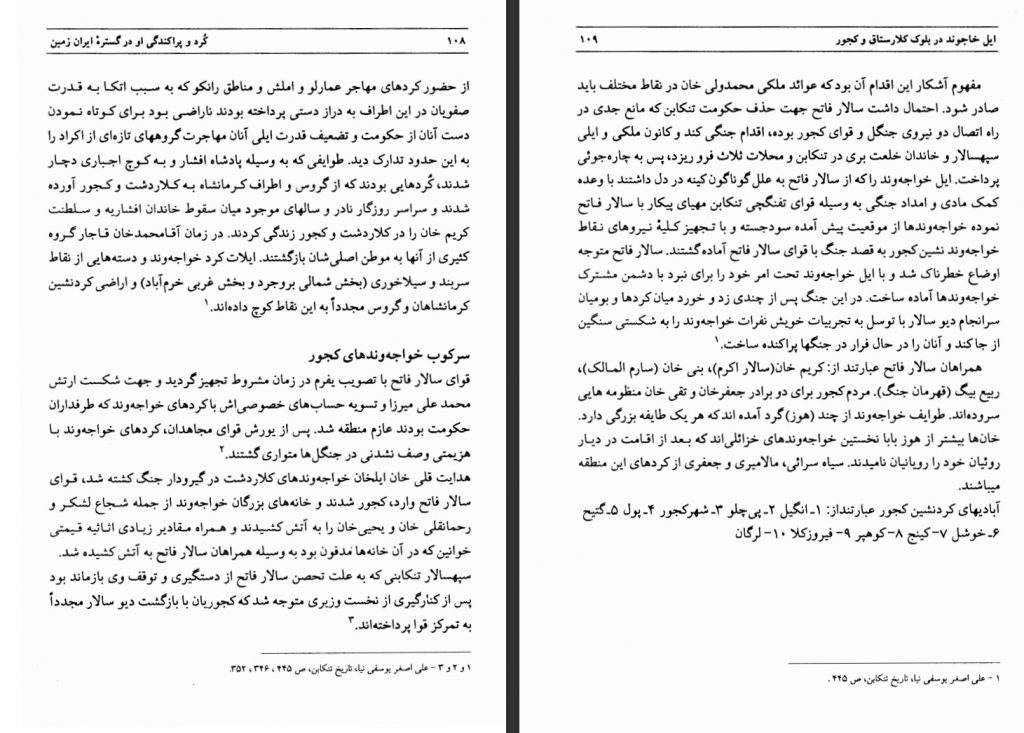 ۱۰۸
کُرد و پراکندگی او در گسترهٔ ایران زمین
از حضور کردهای مهاجر عمارلو و املش و مناطق رانکو که به سبب اتکا به قدرت
صفویان در این اطراف به دراز دستی پرداخته بودند ناراضی بود برای کوتاه نمودن
دست آنان از حکومت و تضعیف قدرت ایلی آنان مهاجرت گروههای تازه‌ای از اکراد را
به این حدود تدارک دید. طوایفی که به وسیله پادشاه افشار و به کوچ اجباری دچار
شدند، کُردهایی بودند که از گروس و اطراف کرمانشاه به کلاردشت و کجور آورده
شدند و سراسر روزگار نادر و سالهای موجود میان سقوط خاندان افشاریه و سلطنت
کریم خان را در کلاردشت و کجور زندگی کردند. در زمان آقامحمدخان قاجار گروه
کثیری از آنها به موطن اصلی‌شان بازگشتند. ایلات کرد خواجه‌وند و دسته‌هایی از نقاط
سربند و سیلاخوری (بخش شمالی بروجرد و بخش غربی خرم‌آباد) و اراضی کردنشین
کرمانشاهان و گروس مجدداً به این نقاط کوچ داده‌اند.۱
سرکوب خواجه‌وندهای کجور
قوای سالار فاتح با تصویب یفرم در زمان مشروط تجهیز گردید و جهت شکست ارتش
محمد علی میرزا و تسویه حساب‌های خصوصی‌اش با کردهای خواجه‌وند که طرفداران
حکومت بودند عازم منطقه شد. پس از یورش قوای مجاهدان، کردهای خواجه‌وند با
هزیمتی وصف نشدنی در جنگل‌ها متواری گشتند.۲
هدایت قلی خان ایلخان خواجه‌وندهای کلاردشت در گیرودار جنگ کشته شد، قوای
سالار فاتح وارد، کجور شدند و خانه‌های بزرگان خواجه‌وند از جمله شجاع لشکر و
رحمانقلی خان و یحیی‌خان را به آتش کشیدند و همراه مقادیر زیادی اثاثیه قیمتی
خوانین که در آن خانه‌ها مدفون بود به وسیله همراهان سالار فاتح به آتش کشیده شد.
سپهسالار تنکابنی که به علت تحصن سالار فاتح از دستگیری و توقف وی بازماند بود
پس از کنارگیری از نخست وزیری متوجه شد که کجوریان با بازگشت دیو سالار مجدداً
به تمرکز قوا پرداخته‌اند.۳
۱ و ۲ و ۳ - علی اصغر یوسفی نیا، تاریخ تنکابن، ص ۴۴۵ ، ۳۴۶ ، ۳۵۲.
ایل خاجوند در بلوک کلارستاق و کجور
۱۰۹
مفهوم آشکار این اقدام آن بود که عوائد ملکی محمدولی خان در نقاط مختلف باید
صادر شود. احتمال داشت سالار فاتح جهت حذف حکومت تنکابن که مانع جدی در
راه اتصال دو نیروی جنگل و قوای کجور بوده، اقدام جنگی کند و کانون ملکی و ایلی
سپهسالار و خاندان خلعت بری در تنکابن و محلات ثلاث فرو ریزد، پس به چاره‌جوئی
پرداخت. ایل خواجه‌وند را که از سالار فاتح به علل گوناگون کینه در دل داشتند با وعده
کمک مادی و امداد جنگی به وسیله قوای تفنگچی تنکابن مهیای پیکار با سالار فاتح
نموده خواجه‌وندها از موقعیت پیش آمده سودجسته و با تجهیز کلیهٔ نیروهای نقاط
خواجه‌وند نشین کجور به قصد جنگ با قوای سالار فاتح آماده گشتند. سالار فاتح متوجه
اوضاع خطرناک شد و با ایل خواجه‌وند تحت امر خود را برای نبرد با دشمن مشترک
خواجه‌وندها آماده ساخت. در این جنگ پس از چندی زد و خورد میان کردها و بومیان
سرانجام دیو سالار با توسل به تجربیات خویش نفرات خواجه‌وند را به شکستی سنگین
از جا کند و آنان را در حال فرار در جنگها پراکنده ساخت.۱
همراهان سالار فاتح عبارتند از: کریم خان(سالار اکرم)، بنی خان (سارم المالک)،
ربیع بیگ (قهرمان جنگ). مردم کجور برای دو برادر جعفرخان و تقی خان منظومه هایی
سروده‌اند. طوایف خواجه‌وند از چند (هوز) گرد آمده اند که هر یک طایفه بزرگی دارد.
خان‌ها بیشتر از هوز بابا نخستین خواجه‌وندهای خزائلی‌اند که بعد از اقامت در دیار
روئیان خود را رویانیان نامیدند. سیاه سرائی، مالامیری و جعفری از کردهای این منطقه
میباشند.
آبادیهای کردنشین کجور عبارتنداز: ۱ـ انگیل ۲ـ پی‌چلو ۳ـ شهرکجور ۴ـ پول ۵ـ گتیج
۶ـ خوشل ۷-کینج ۸-کوهپر ۹- فیروزکلا ۱۰- لرگان
۱ - علی اصغر یوسفی نیا، تاریخ تنکابن، ص ۴۴۵ .